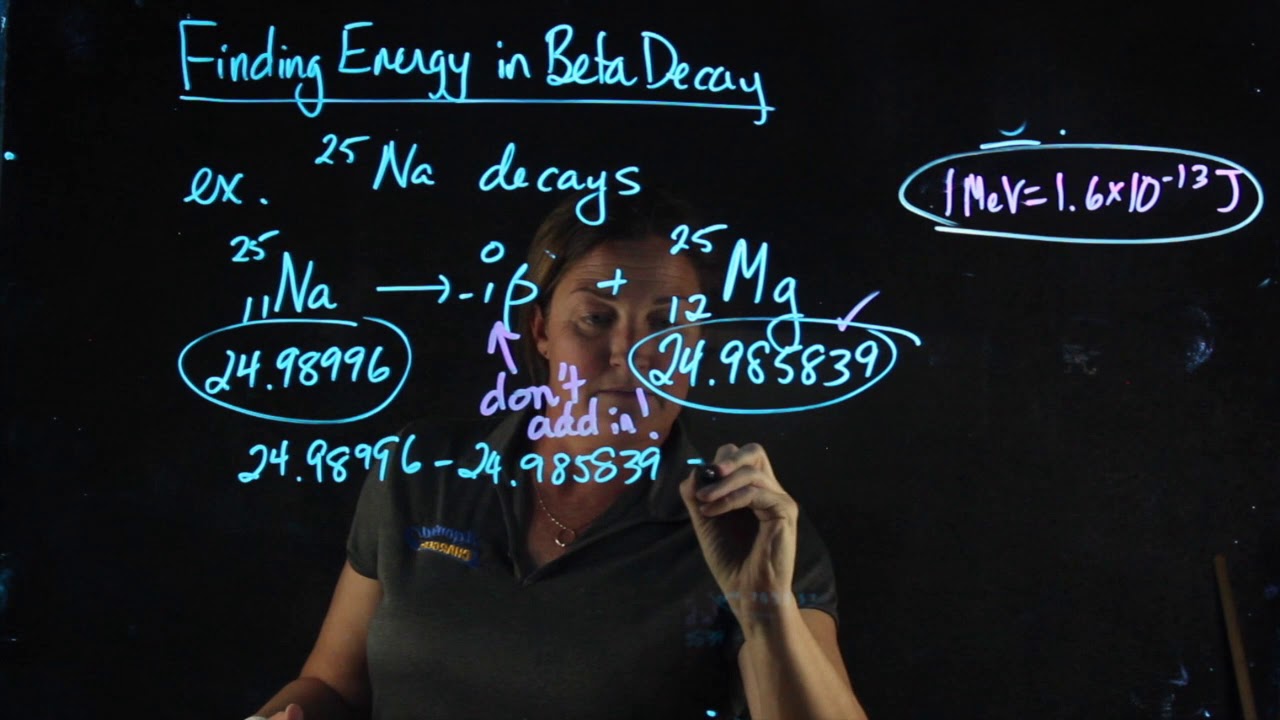 Finding Energy in Beta Decay
ex. ²⁵Na decays
1 MeV = 1.6×10⁻¹³ J
²⁵₁₁Na → ⁰₋₁β + ²⁵₁₂Mg
24.98996 24.985839 ✓
don't
add in!
24.98996 - 24.985839 -